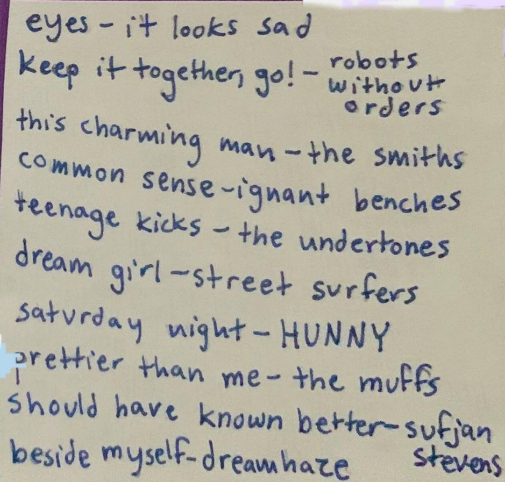 eyes - it looks sad
keep it together, go! - robots without orders
this charming man - the smiths
common sense - ignant benches
teenage kicks - the undertones
dream girl - street surfers
saturday night - HUNNY
prettier than me - the muffs
should have known better - sufjan stevens
beside myself - dreamhaze